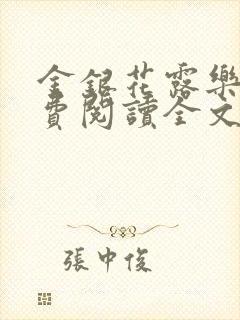 金銀花露樂
費閱讀全文
張中俊